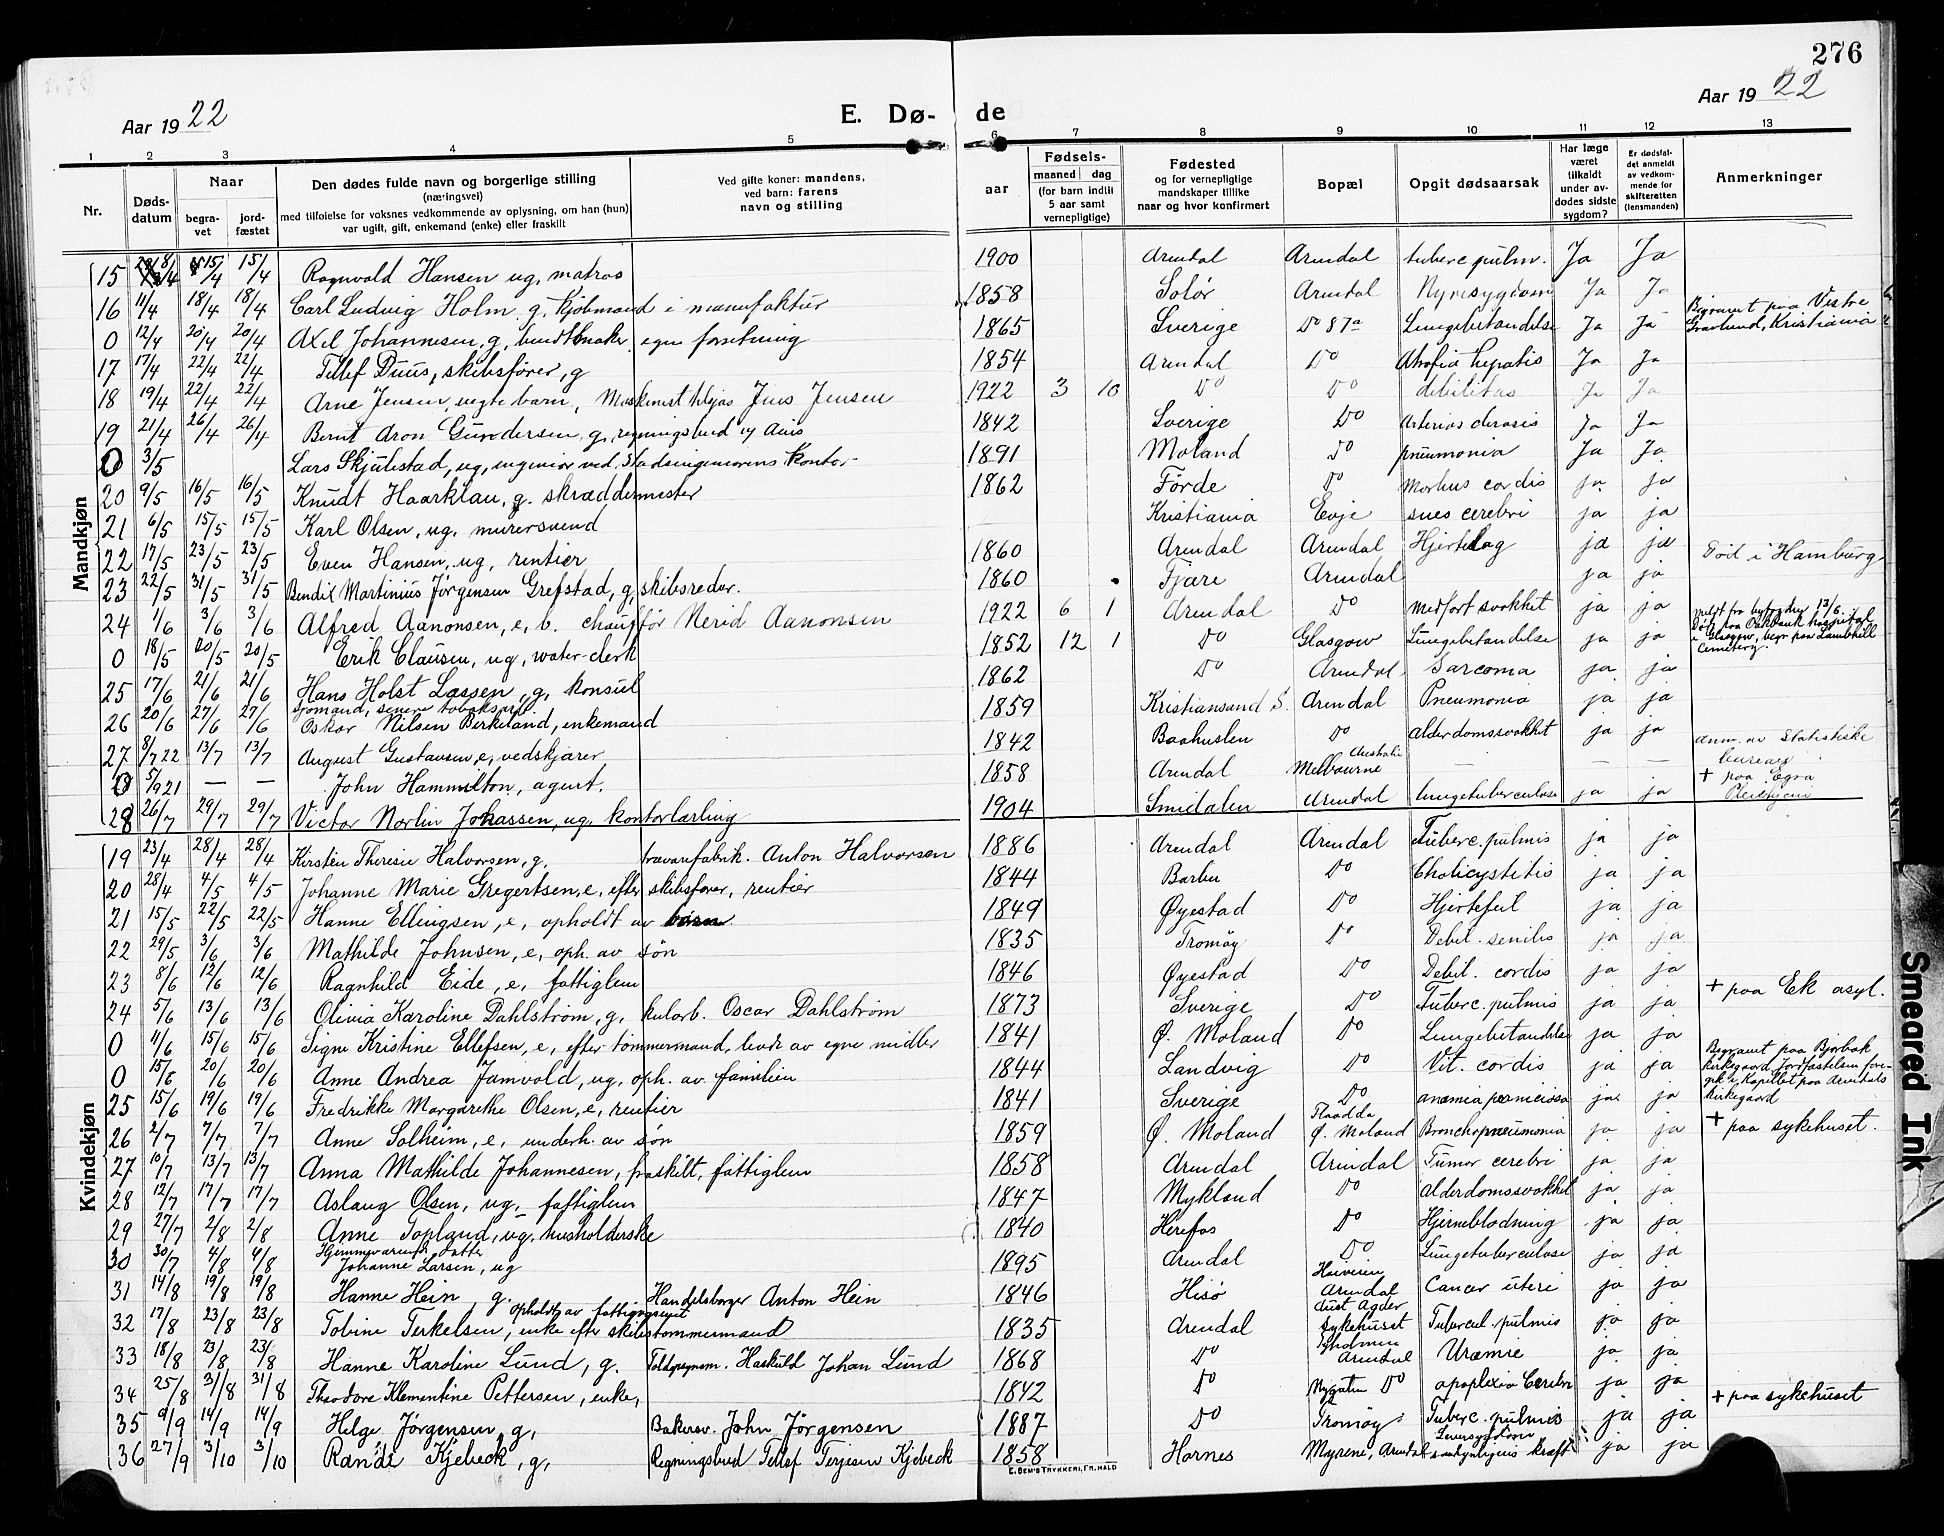 276
Aar 1922
E. Dø- de
Aar 1922
1 2 3 4 5 6 7 8 9 10 11 12 13
Nr.
Døds-datum
Naar
begra-vet
jord-fæstet
Den dødes fulde navn og borgerlige stilling
(næringsvei)
med tilføielse for voksnes vedkommende av oplysning, om han (hun)
var ugift, gift, enkemand (enke) eller fraskilt
Ved gifte koner: mandens,
ved barn: farens
navn og stilling
Fødsels-
aar
maaned dag
(for barn indtil
5 aar samt
vernepligtige)
Fødested
og for vernepligtige
mandskaper tillike
naar og hvor konfirmert
Bopæl
Opgit dødsaarsak
Har læge
været
tilkaldt
under av-
dødes sidste
sygdom?
Er dødsfal-
det anmeldt
av vedkom-
mende for
skifteretten
(lensmanden)
Anmerkninger
Mandkjøn
15 15/4 15/4 Ragnvald Hansen ug, matros 1900 Arendal Arendal tuberc pulm. Ja Ja
16 11/4 18/4 18/4 Carl Ludvig Holm g. kjøbmand i manufaktur 1858 Solør Arendal Nyresygdom Ja Ja
0 12/4 20/4 20/4 Axel Johannesen, g, bundtmaker, egen forretning 1865 Sverige Do 87a Lungebetændelse Ja Ja Begravet paa Vestre Gravlund, Kristiania
17 17/4 22/4 22/4 Tellef Duus, skibsfører, g 1854 Arendal Do Atrofia hepatis Ja Ja
18 19/4 22/4 22/4 Arne Jensen, uegte barn, Maskinist Jens Jensen 1922 3 10 Do Do debilitas Ja Ja
19 21/4 26/4 26/4 Bernt Aron Gundersen g, regningsbud 1842 Sverige Do Arteriosclerosis Ja Ja
0 3/5 Lars Skjulestad, ug, ingeniør ved Stadsingeniørens Kontor 1891 Moland Do pneumonia Ja Ja
20 9/5 16/5 16/5 Knudt Haarklau, g. skræddermester 1862 Førde Do Morbus cordis ja ja
21 6/5 15/5 15/5 Karl Olsen, ug, murersvend Kristiania Evje cerebri ja ja
22 17/5 23/5 23/5 Even Hansen, ug, rentier 1860 Arendal Arendal Hjerteslag ja ja
23 22/5 31/5 31/5 Bendix Martinius Jørgensen Grefstad, g, skibsreder. 1860 Fjære Arendal ja ja Død i Hamburg
24 1/6 3/6 3/6 Alfred Aanonsen, e, b. chauffør Nerid Aanonsen 1922 6 1 Arendal Do Medført svakhet ja ja
0 18/5 20/5 20/5 Erik Clausen, ug, water-clerk 1852 12 1 Do Glasgow Lungebetændelse ja ja Meldt fra byfogden 13/6. Død paa Oakbank hospital i Glasgow, begr paa Lambhill Cemetery.
25 17/6 21/6 21/6 Hans Holst Lassen, g, konsul 1862 Do Arendal Sarcoma ja ja
26 20/6 27/6 27/6 Sjømand, senere Oskar Nilsen Birkeland, enkemand 1859 Kristiansand S. Arendal Pneumonia ja ja
27 8/7 22 13/7 13/7 August Gustavsen, e, vedskjærer 1842 Baahuslen Do alderdomssvakhet ja ja
0 5/9 21 — — John Hammilton, agent. 1858 Arendal Melbourne Australie — — — Anm. av Statistiske bureau
28 26/7 29/7 29/7 Victor Norlin Johassen, ug. kontorlærling 1904 Smedalen Arendal lungetuberculose ja ja + paa Egra Pleiehjem
Kvindekjøn
19 23/4 28/4 28/4 Kirsten Theresie Halvorsen, g, travarefabrik. Anton Halvorsen 1886 Arendal Arendal Tuberc. pulmis ja ja
20 28/4 4/5 4/5 Johanne Marie Gregertsen, e, efter skibsfører, rentier 1844 Barbu Do Cholicystitis ja ja
21 15/5 22/5 22/5 Hanne Ellingsen, e, opholdt av børn. 1849 Øyestad Do Hjertefeil ja ja
22 29/5 3/6 3/6 Mathilde Johnsen, e, oph. av søn 1835 Tromøy Do Debil. senilis ja ja
23 8/6 12/6 12/6 Ragnhild Eide, e, fattiglem 1846 Øyestad Do Debil. cordis ja ja
24 5/6 13/6 13/6 Olivia Karoline Dahlstrøm, g, kularb. Oscar Dahlstrøm 1873 Sverige Do Tuberc. pulmis ja ja + paa Ek asyl.
0 11/6 15/6 15/6 Signe Kristine Ellefsen, e, efter tømmermand, levde av egne midler 1841 Ø. Moland Do Lungebetændelse ja ja
0 15/6 20/6 20/6 Anne Andrea Jamvold, ug, oph. av familien 1844 Landvig Do Vit. cordis ja ja Begravet paa Bjorbæk kirkegaard, Jordfæstelsen foregik i Kapellet paa Arendals kirkegaard
25 15/6 19/6 19/6 Fredrikke Margarethe Olsen, e, rentier 1841 Sverige Do anæmia perniciosa ja ja
26 2/7 7/7 7/7 Anne Solheim, e, underh. av søn 1859 Ø. Moland Flaadda Ø. Moland Bronchopneumonia ja ja + paa sykehuset.
27 10/7 13/7 13/7 Anna Mathilde Johannesen, fraskilt, fattiglem 1858 Arendal Arendal Tumor cerebri ja ja
28 12/7 17/7 17/7 Aslaug Olsen, ug, fattiglem 1847 Mykland Do alderdomssvakhet ja ja
29 27/7 2/8 2/8 Anne Topland, ug, husholderske 1840 Herefos Do Hjerneblødning ja ja
30 30/7 4/8 4/8 Hjemmeværende datter Johanne Larsen, ug 1895 Arendal Do Lungetuberculose ja ja
31 14/8 19/8 19/8 Hanne Hein, g. Handelsborger Anton Hein 1846 Hisø Arendal Cancer uteri ja ja
32 17/8 23/8 23/8 opholdt av fattigvæsenet Tobine Terkelsen, enke efter skibstømmermand 1835 Arendal Aust Agder sykehuset Tubercul. pulmis ja ja
33 18/8 23/8 23/8 Hanne Karoline Lund, g. Toldopsynsm. Haskuld Johan Lund 1868 Do Tyholmen Arendal Uræmie ja ja
34 25/8 31/8 31/8 Theodore Klementine Pettersen, enke, 1842 Do Nygaten Do apoplexia Cerebri ja ja + paa sykehuset
35 9/9 14/9 14/9 Helge Jørgensen, g, Bakersv. John Jørgensen 1887 Do Tromøy Tuberc. pulmis ja ja
36 27/9 3/10 3/10 Randi Kjebeck, g, Regningsbud Tellef Terjesen Kjebeck 1858 Hornes Myrene, Arendal Leversygdom sandsynligvis kræft ja ja
E. SEM'S TRYKKERI, FR.HALD
Smeared Ink